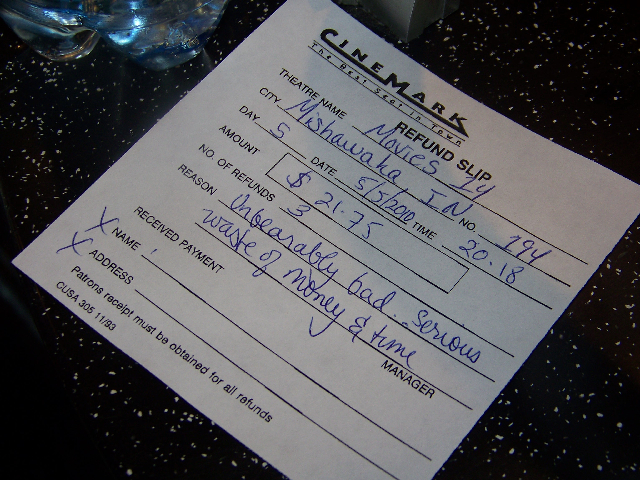 CINEMARK
The Best Seat in Town
REFUND SLIP
THEATRE NAME Movies 14
CITY Mishawaka, IN NO. 194
DAY 5 DATE 5/5/2010 TIME 20:18
AMOUNT $ 21.75
NO. OF REFUNDS 3
REASON Unbearably bad.. Serious
waste of money & time
RECEIVED PAYMENT MANAGER
X NAME
X ADDRESS
Patrons receipt must be obtained for all refunds
CUSA 305 11/93